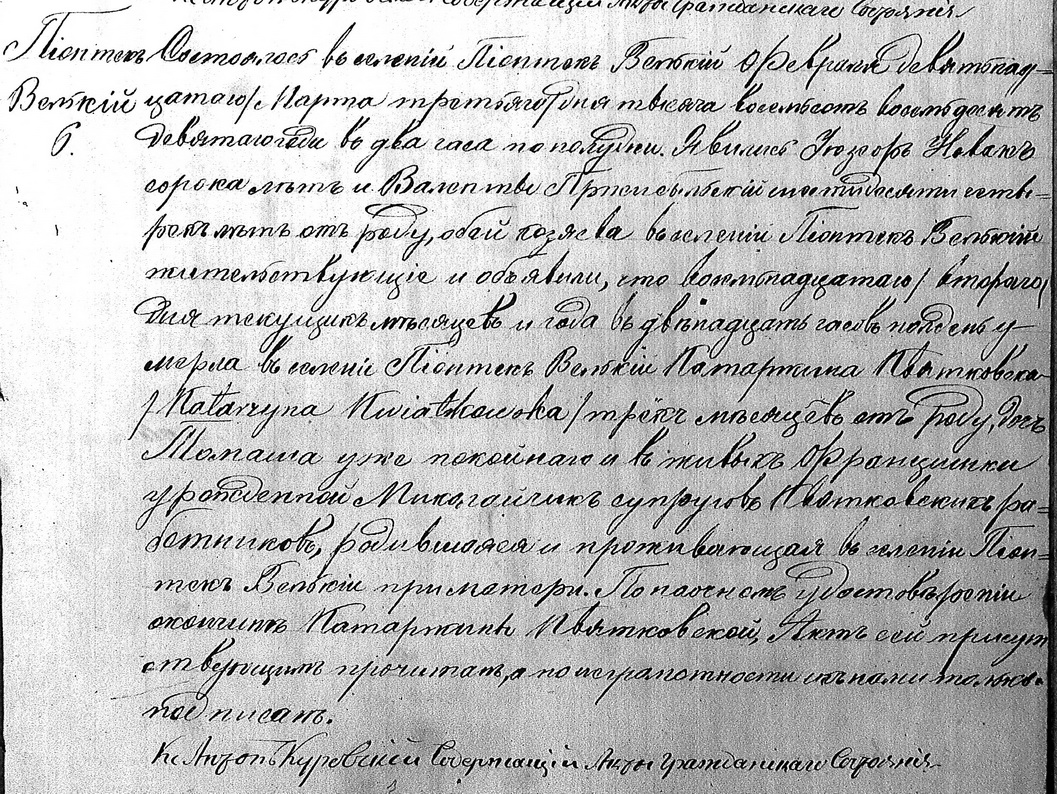 Кс Антонъ Куровскій Содержащій Акты Гражданскаго Состоянія
Піонтекъ Состоялось въ селеніи Піонтекъ Велькій Февраля девятнад-
Велькій цатаго / Марта третьяго / дня тысяча восемьсотъ восемьдесятъ
6. девятаго года въ два часа по полудни. Явились Іюзефъ Новакъ
сорока лѣтъ и Валентый Пржибыльскій шестидесяти четы-
рехъ лѣтъ отъ роду, обей хозяева въ селеніи Піонтекъ Велькій
жительствующіе и объявили, что восемьнадцатаго / втораго /
дня текущихъ мѣсяцевъ и года въ двѣнадцать часовъ полдень у-
мерла въ селеніи Піонтекъ Велькій Катаржина Квятковска
/ Katarzyna Kwiatkowska / трёхъ мѣсяцевъ отъ роду, дочь
Томаша уже покойнаго и въ живыхъ Францишки
урожденной Миколайчикъ супруговъ Квятковскихъ ра-
ботниковъ, родившаяся и проживающая въ селеніи Піон-
текъ Велькій при матери. По наочномъ удостовѣреніи о
кончинѣ Катаржины Квятковской, Актъ сей присут
ствующимъ прочитанъ, а по неграмотности ихъ нами только
подписанъ.
Кс Антонъ Куровскій Содержащій Акты Гражданскаго Состоянія